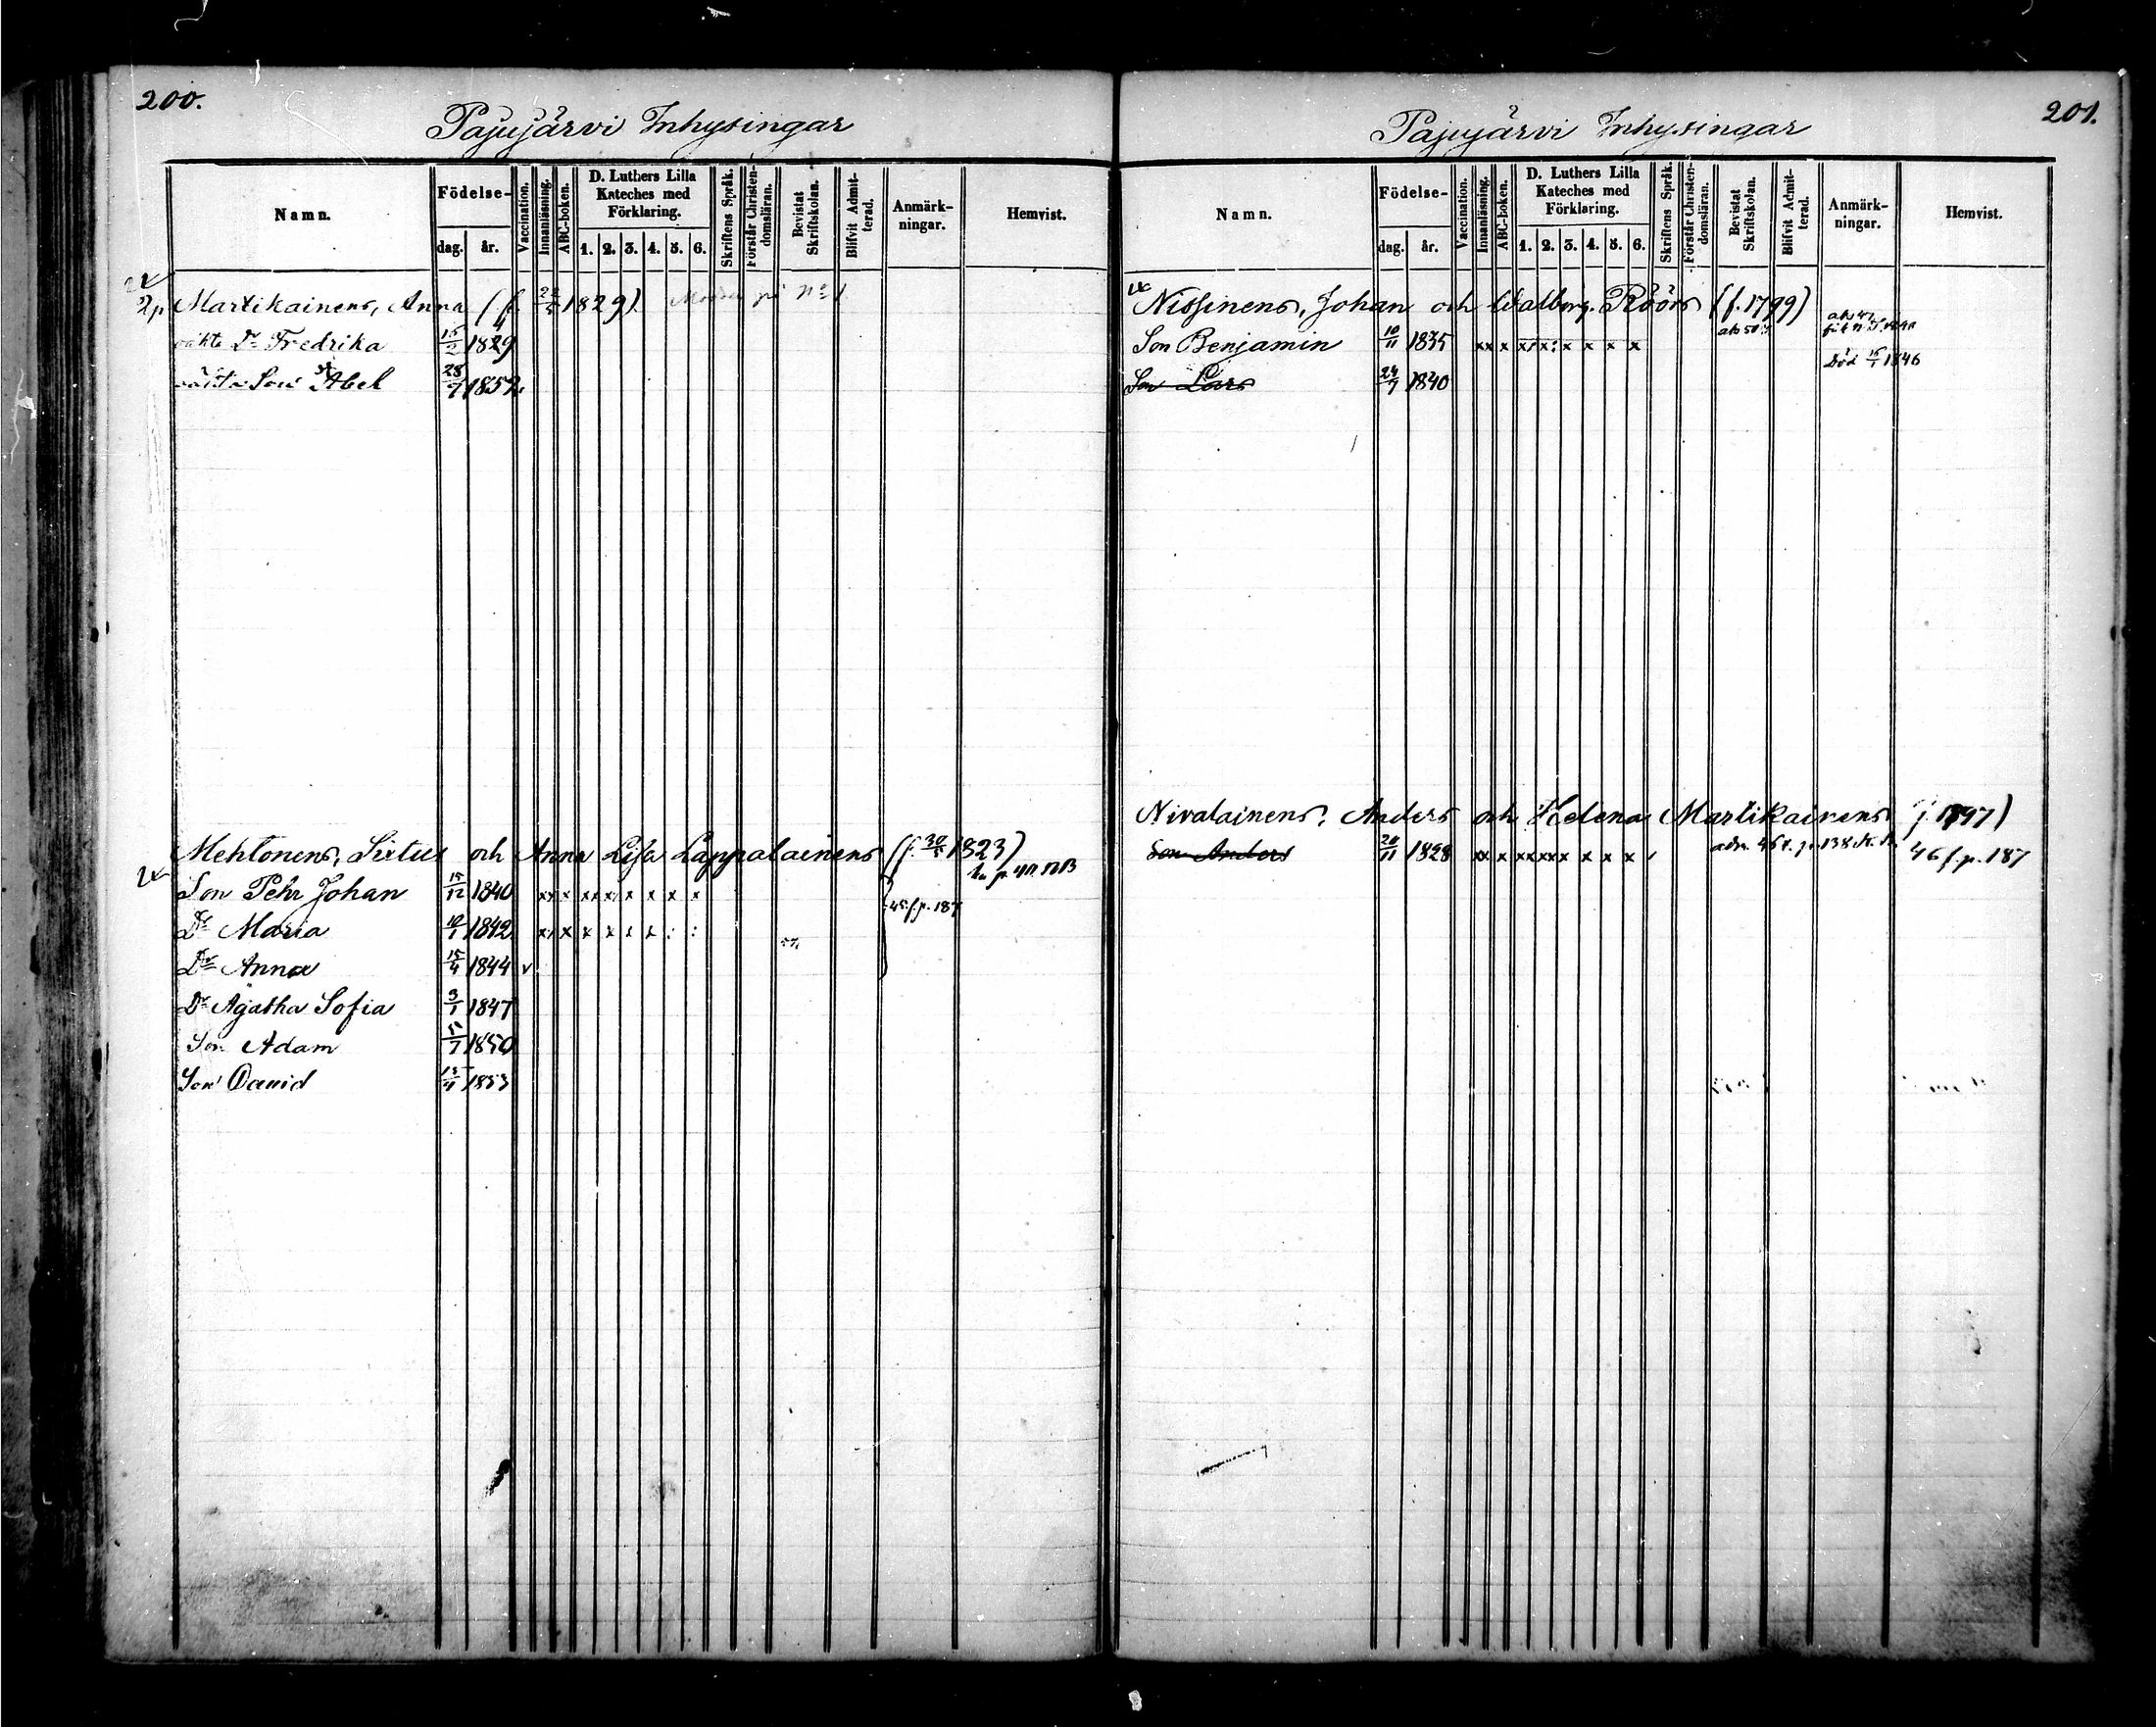 200.
Pajujärvi Inhysingar
Namn.
Födelse-
dag. år.
Vaccination.
Innanläsning.
ABC-boken.
D. Luthers Lilla
Kateches med
Förklaring.
1. 2. 3. 4. 5. 6.
Skriftens Språk.
Förstår Christen-
domsläran.
Bevistat
Skriftskolan.
Blifvit Admit-
terad.
Anmärk-
ningar.
Hemvist.
Martikainens, Anna (f. 1829)
Dr Fredrika 15/2 1829
Son Abel 28/7 1852
Mehtonens, Sixtus och Anna Lisa Lappalainens (f. 30/5 1823)
Son Pehr Johan 15/12 1840 xx x xx x x x x x
45 f.p. 187
Dr Maria 10/1 1842
Dr Anna 15/4 1844 v
Dr Agatha Sofia 3/1 1847
Son Adam 5/7 1850
Son David 1853
201.
Pajujärvi Inhysingar
Namn.
Födelse-
dag. år.
Vaccination.
Innanläsning.
ABC-boken.
D. Luthers Lilla
Kateches med
Förklaring.
1. 2. 3. 4. 5. 6.
Skriftens Språk.
Förstår Christen-
domsläran.
Bevistat
Skriftskolan.
Blifvit Admit-
terad.
Anmärk-
ningar.
Hemvist.
Nissinens, Johan och Walborg Röörs (f. 1799)
Son Benjamin 10/11 1835
död 1846
Son Lars 24/9 1840
Nivalainens, Anders och Helena Martikainens
Son Anders 20/11 1828 46 f.p. 187